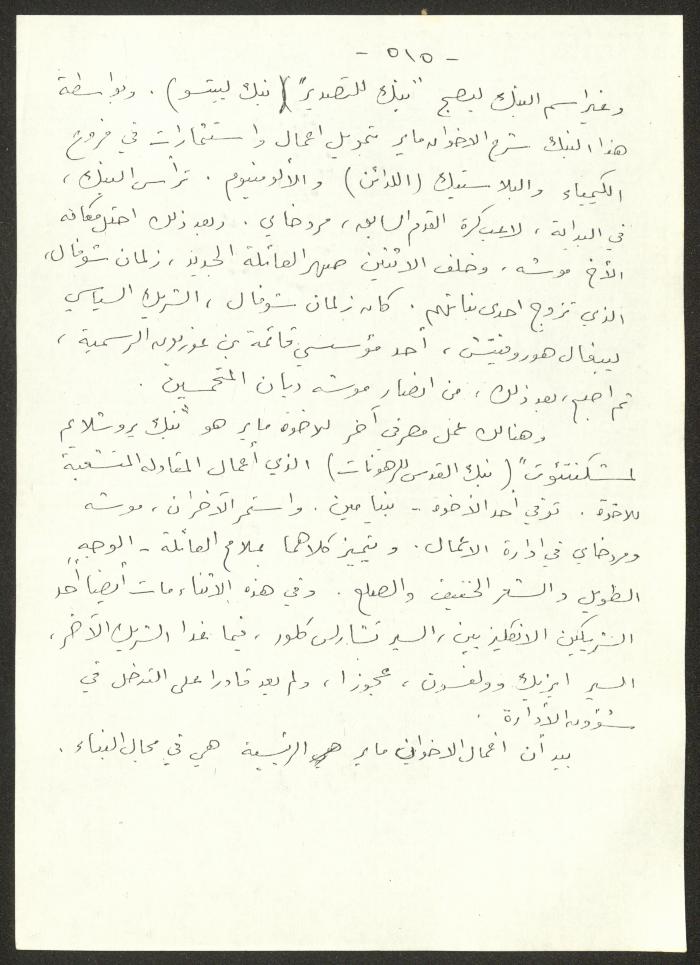 - ٥١٥ -
وغير اسم البنك ليصبح "بنك للتصدير" (بنك ليتسو) . وبواسطة
هذا البنك شرع الاخوان ماير بتمويل اعمال واستثمارات في فروع
الكيمياء والبلاستيك (اللدائن) والألومنيوم . ترأس البنك ،
في البداية ، لاعب كرة القدم السابق ، مردخاي . وبعد ذلك احتل مكانه
الأخ موشه ، وخلف الاثنين صهر العائلة الجديد ، زلمان شوفال ،
الذي تزوج احدى بناتهم . كان زلمان شوفال ، الشريك السياسي
ليغال هوروفيتش ، أحد مؤسسي قائمة بن غوريون الرسمية ،
ثم اصبح ، بعد ذلك ، من انصار موشه ديان المتحمسين .
وهنالك عمل مصرفي آخر للاخوة ماير هو "بنك يروشلايم
لمشكنتئوت" (بنك القدس للرهونات) الذي أعمال المقاولة المتشعبة
للاخوة . توفي أحد الأخوة - بنيامين . واستمر الآخران ، موشه
ومردخاي في ادارة الاعمال . ويتميز كلاهما بملامح العائلة - الوجه
الطويل والشعر الخفيف والصلع . وفي هذه الأثناء مات أيضا أحد
الشريكين الانكليزيين ، السير تشارلس كلور ، فيما غدا الشريك الآخر ،
السير ايزيك وولفسون ، عجوزا ، ولم يعد قادرا على التدخل في
شؤون الأدارة .
بيد أن اعمال الاخوان ماير الرئيسية هي في مجال البناء .